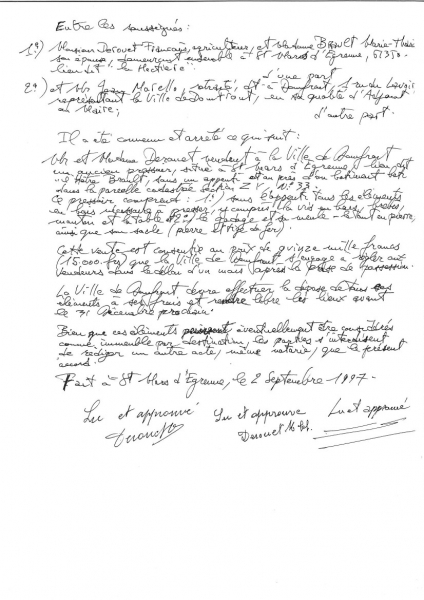 Entre les soussignés:
1°) Monsieur Derouet Français, agriculteur, et Madame Marie-Thé
son épouse, demeurant ensemble à St Mars d'Egrenne, 61350.
lieu-dit la
d'une part
2°) et Mr Marcello, retraité, à Domfront, 1 rue
représentant la Ville de Domfront, en sa qualité d'Adjoint
au Maire,
d'autre part.
Il a été convenu et arrêté ce qui suit:
Mr et Madame Derouet vendent à la Ville de Domfront
un ancien pressoir, situé à St Mars d'Egrenne, lieu dit
sous un appentis en au près d'un bâtiment bâti
dans la parcelle cadastrée section ZY, N° 33.
Ce pressoir comprend: 1°) sous l'appentis tous les éléments
en bois nécessaires à presser, y compris la vis en bois,
mouton et la table et 2°) le et sa meule - le tout en pierre,
ainsi que son socle (pierre et de fer).
Cette vente est consentie au prix de quinze mille francs
(15.000 frs) que la Ville de Domfront s'engage à régler aux
vendeurs dans le délai d'un mois après la prise de possession.
La Ville de Domfront devra effectuer la dépose de tous ces
éléments à ses frais et rendre libre les lieux avant
le 31 Décembre prochain.
Bien que ces éléments puissent éventuellement être considérés
comme immeuble par destination, les parties s'interdisent
de rédiger un autre acte, même notarié, que le présent
accord.
Fait à St Mars d'Egrenne, le 2 Septembre 1997.
Lu et approuvé Lu et approuvé Lu et approuvé
Derouet